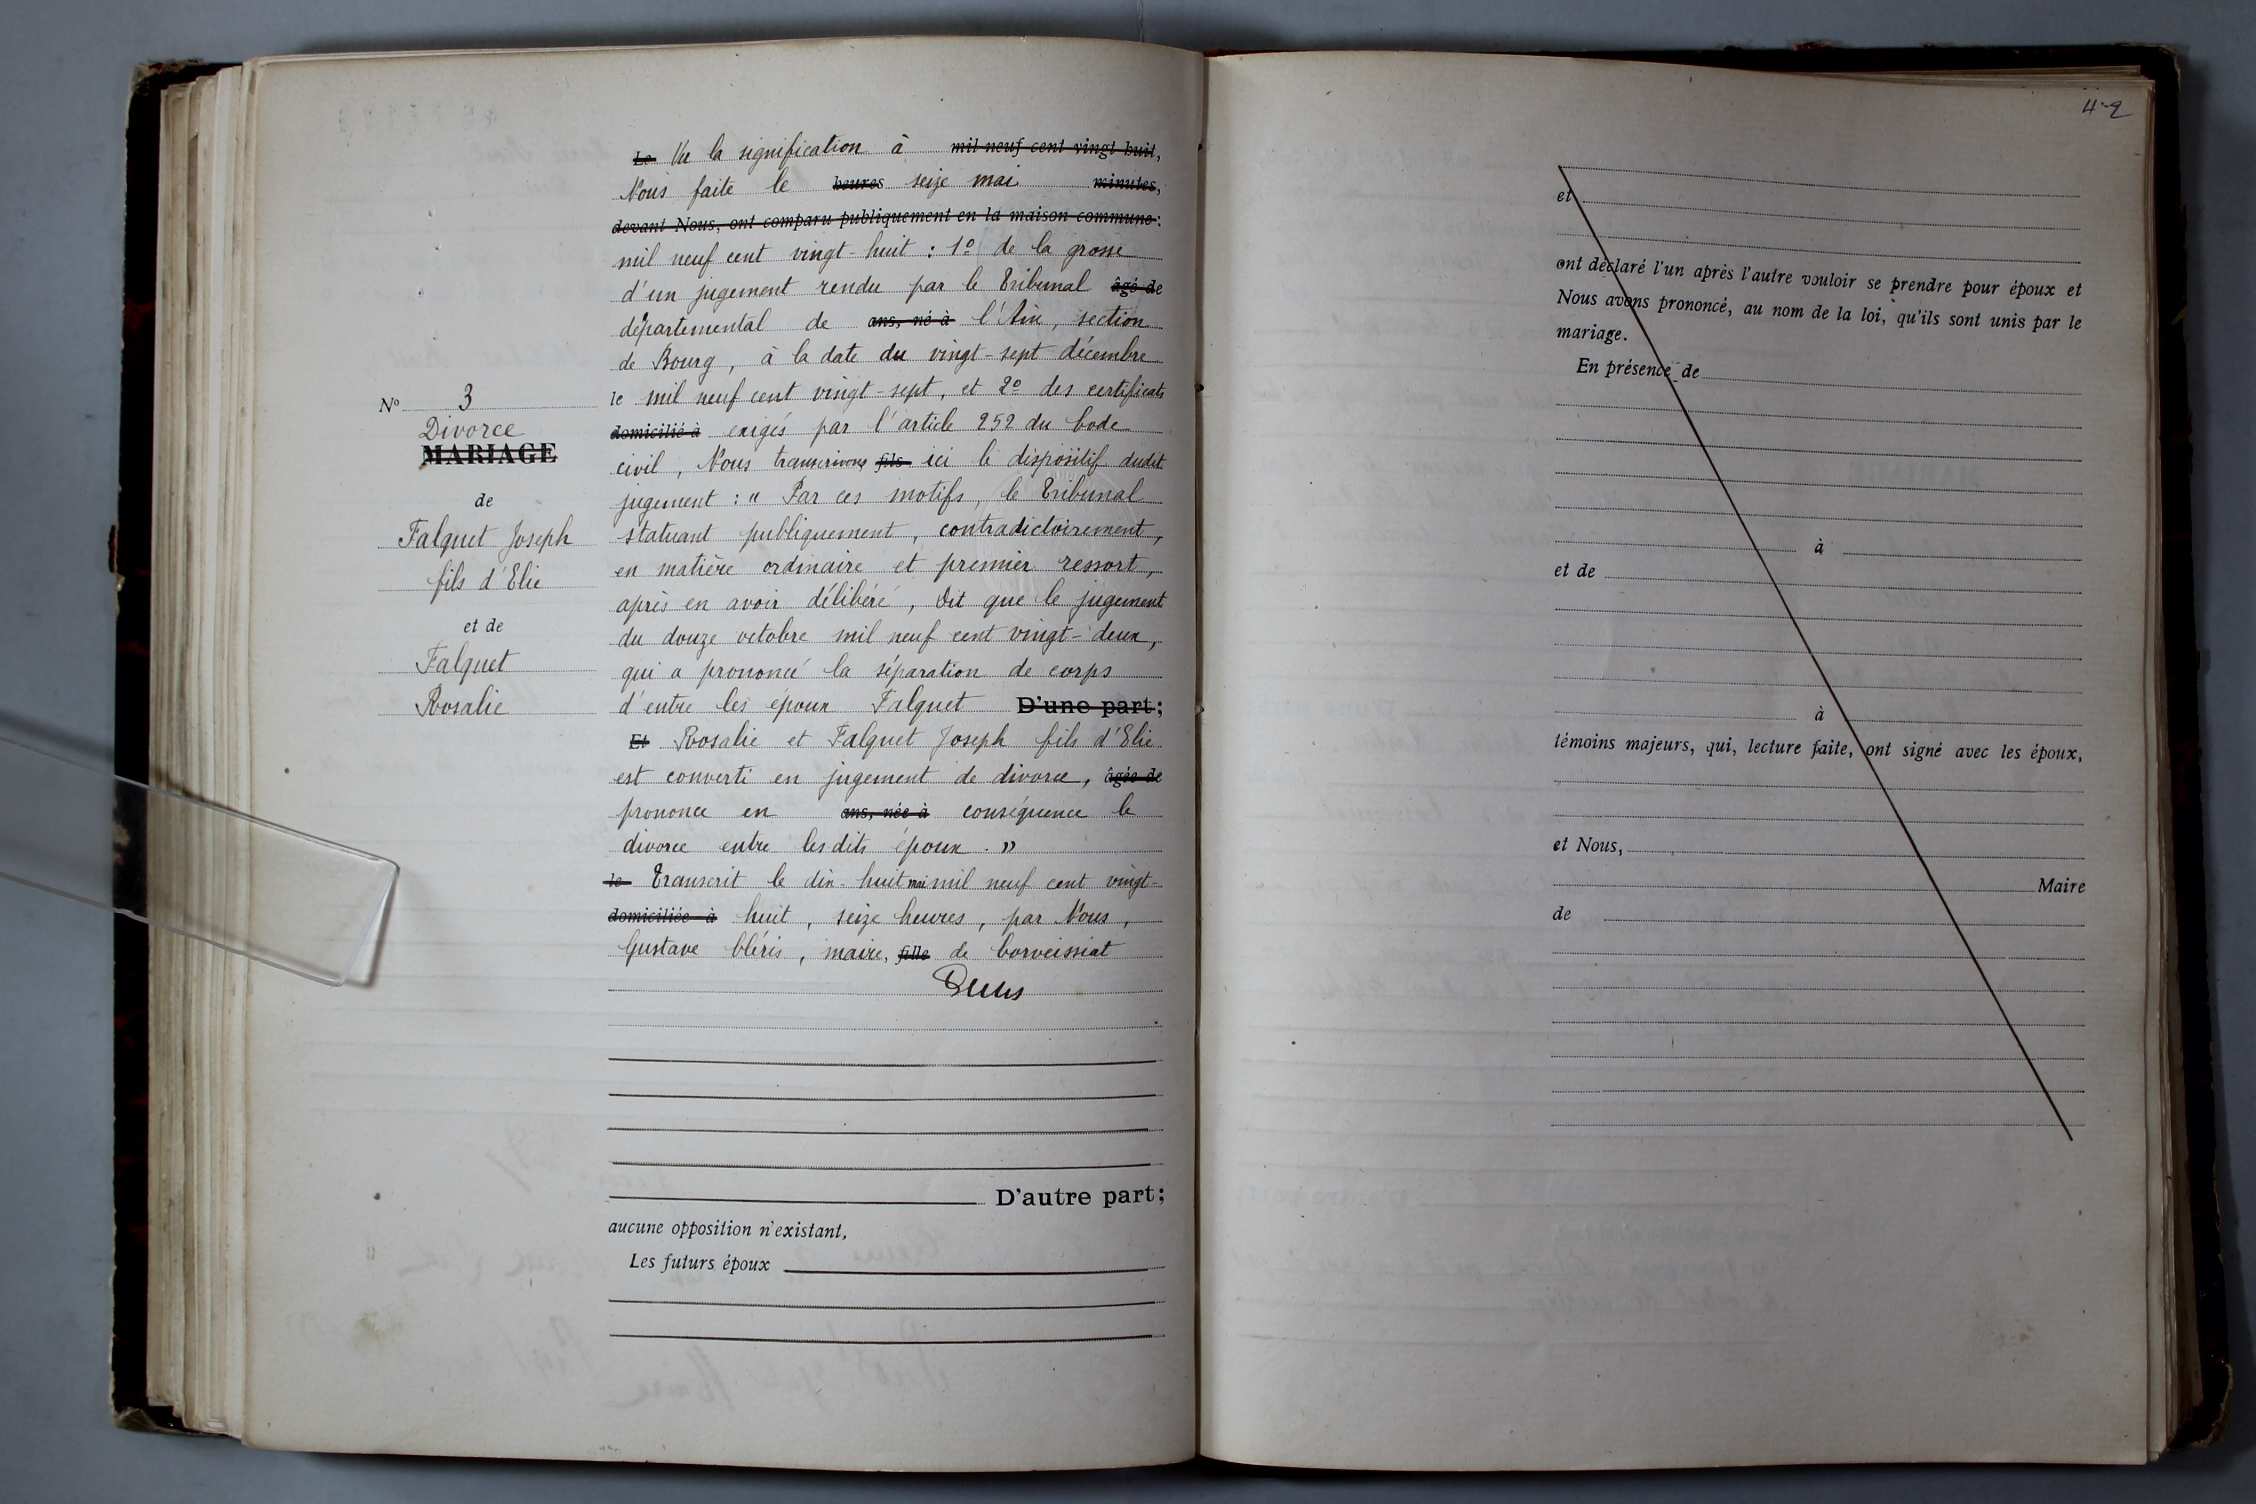 N° 3
Divorce
MARIAGE
de
Falquet Joseph
fils d'Elie
et de
Falquet
Rosalie
Le Vu la signification à mil neuf cent vingt huit,
Nous faite le heures seize mai minutes,
devant Nous, ont comparu publiquement en la maison commune :
mil neuf cent vingt-huit : 1° de la grosse
d'un jugement rendu par le Tribunal âgé de
départemental de ans, né à l'Ain, section
de Bourg, à la date du vingt-sept décembre
le mil neuf cent vingt-sept, et 2° des certificats
domicilié à exigés par l'article 252 du Code
civil, Nous transcrivons fils ici le dispositif dudit
jugement : " Par ces motifs, le Tribunal
statuant publiquement, contradictoirement,
en matière ordinaire et premier ressort,
après en avoir délibéré, Dit que le jugement
du douze octobre mil neuf cent vingt-deux,
qui a prononcé la séparation de corps
d'entre les époux Falquet D'une part ;
Et Rosalie et Falquet Joseph fils d'Elie
est converti en jugement de divorce, âgée de
prononce en ans, née à conséquence le
divorce entre lesdits époux. "
le Transcrit le dix-huit mai mil neuf cent vingt-
domiciliée à huit, seize heures, par Nous,
Gustave Cléris, maire, fille de Corveissiat
D'autre part ;
aucune opposition n'existant,
Les futurs époux
42
et
ont déclaré l'un après l'autre vouloir se prendre pour époux et
Nous avons prononcé, au nom de la loi, qu'ils sont unis par le
mariage.
En présence de
à
et de
à
témoins majeurs, qui, lecture faite, ont signé avec les époux,
et Nous,
Maire
de